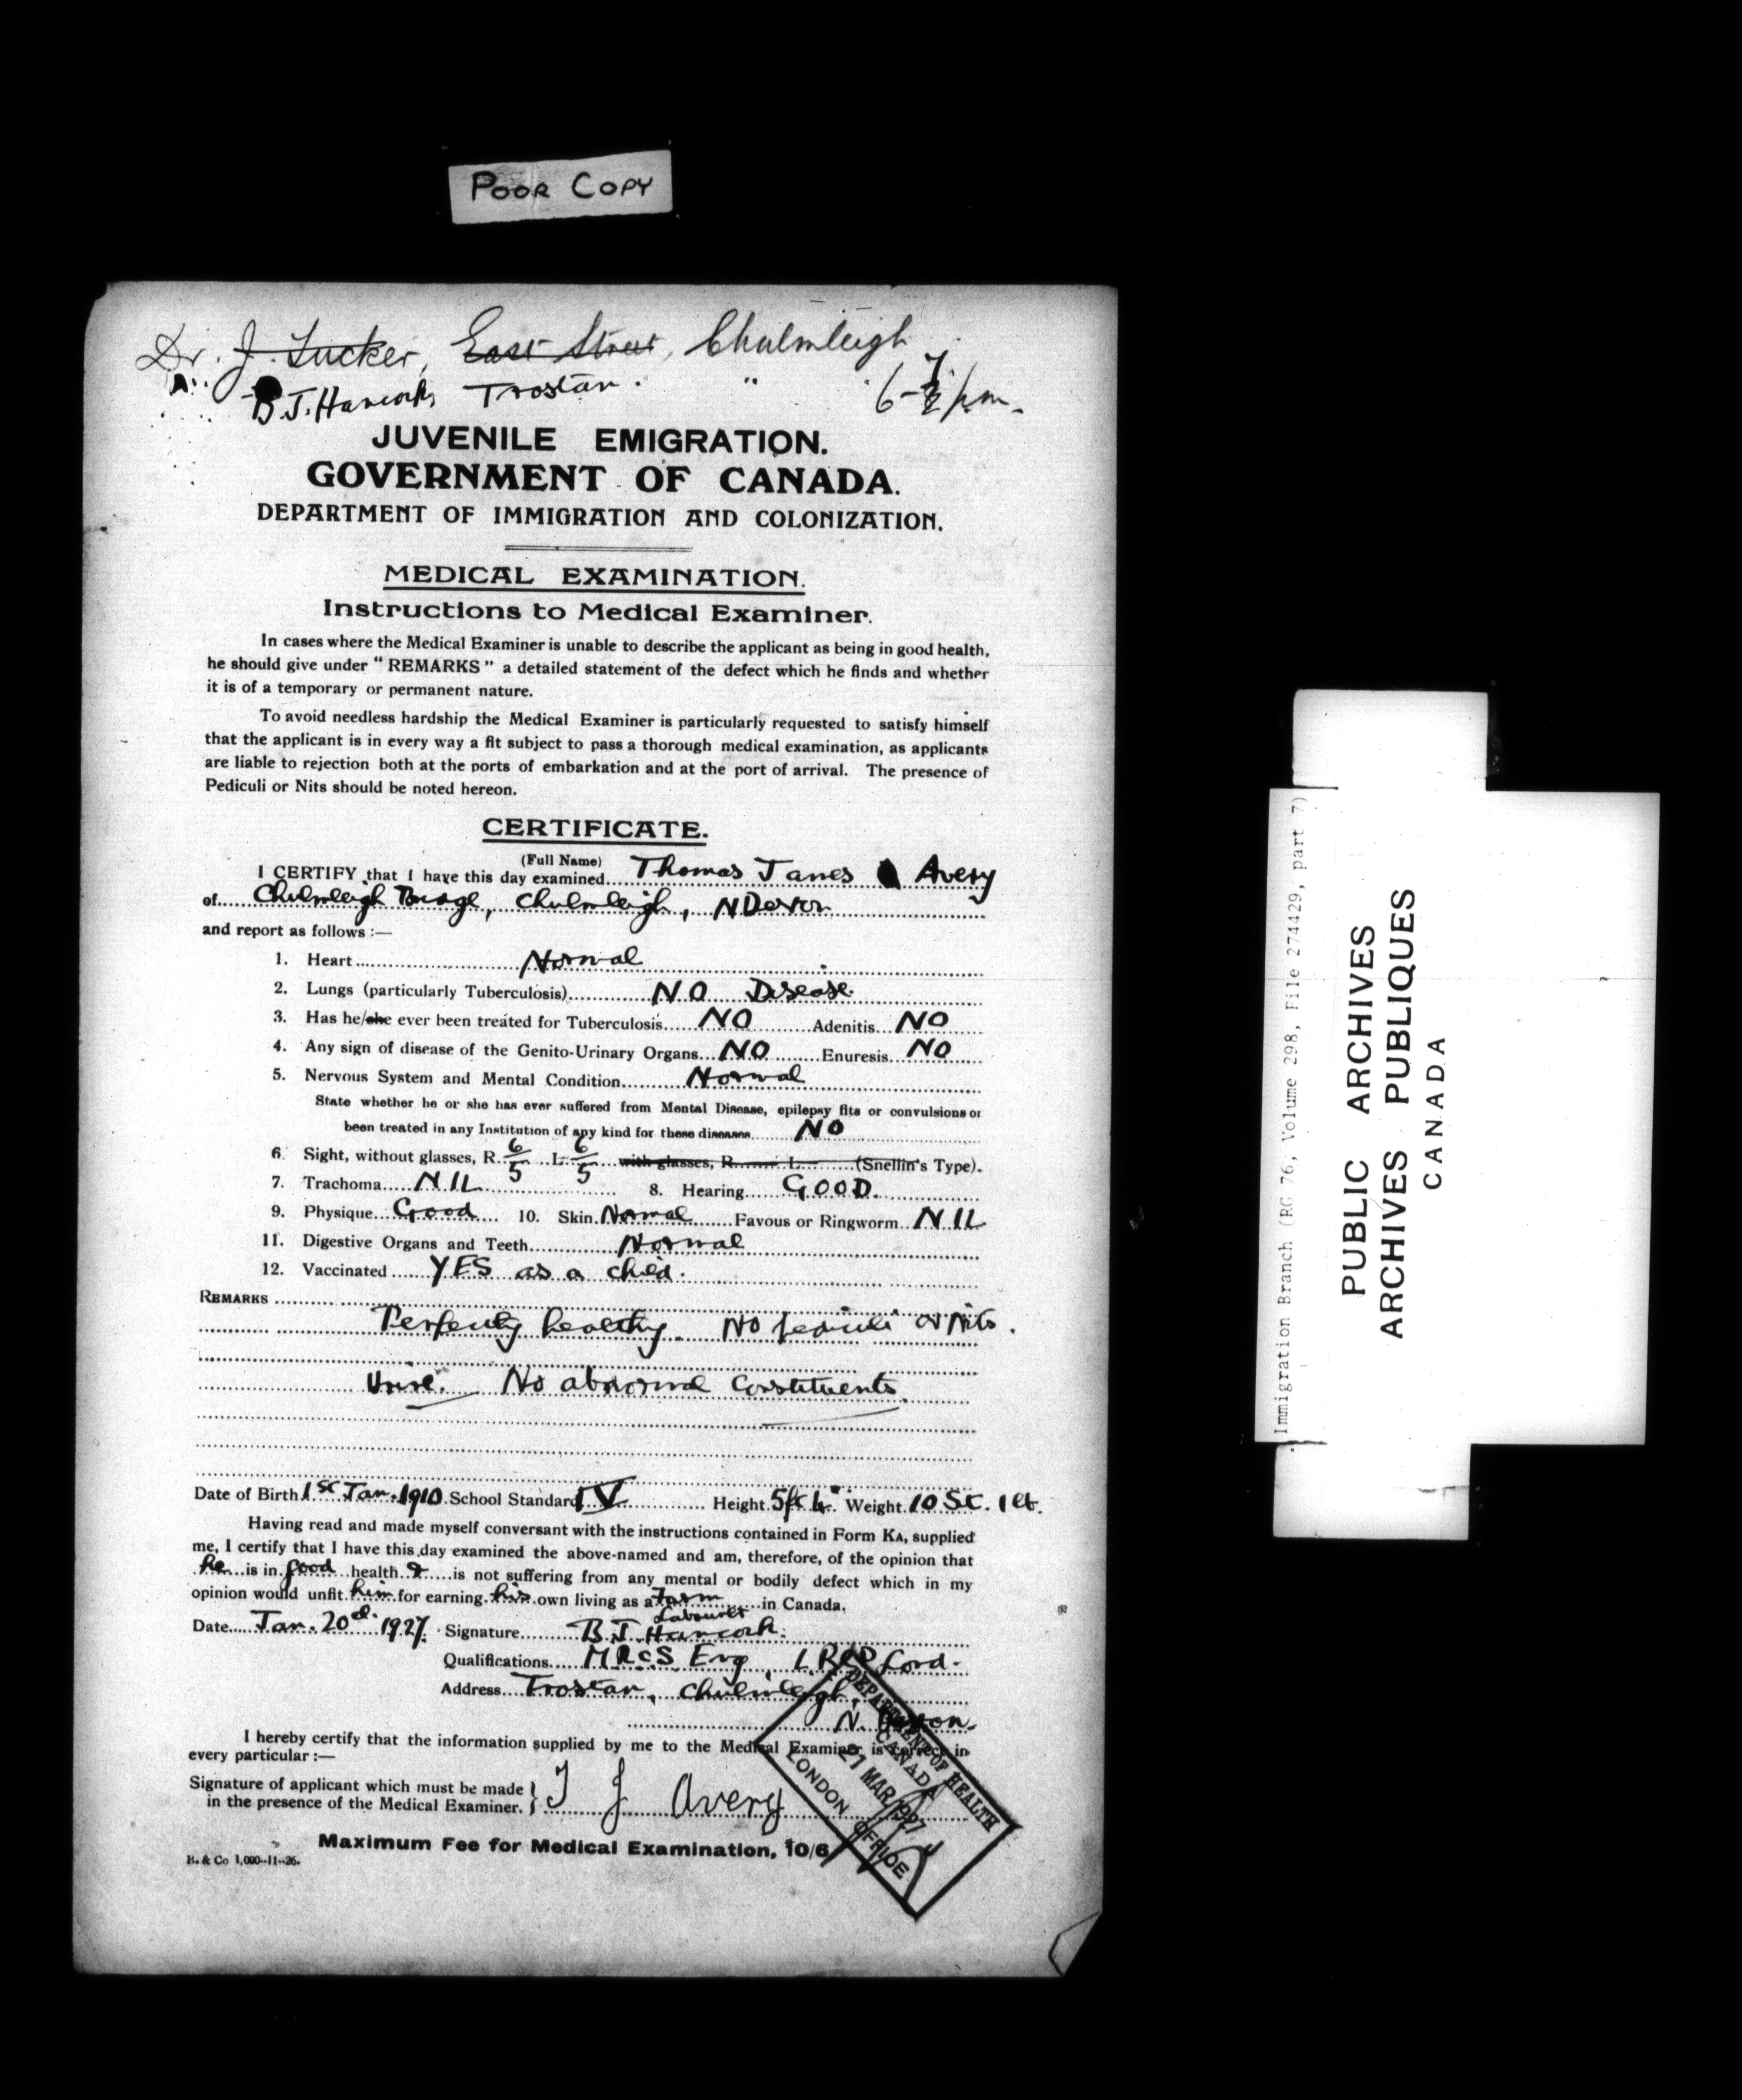 POOR COPY
Dr. J. Tucker, East Street, Chulmleigh
B.J. Hancock, Trostan. " 6-7 pm.
JUVENILE EMIGRATION.
GOVERNMENT OF CANADA.
DEPARTMENT OF IMMIGRATION AND COLONIZATION.
MEDICAL EXAMINATION.
Instructions to Medical Examiner.
In cases where the Medical Examiner is unable to describe the applicant as being in good health,
he should give under "REMARKS" a detailed statement of the defect which he finds and whether
it is of a temporary or permanent nature.
To avoid needless hardship the Medical Examiner is particularly requested to satisfy himself
that the applicant is in every way a fit subject to pass a thorough medical examination, as applicants
are liable to rejection both at the ports of embarkation and at the port of arrival. The presence of
Pediculi or Nits should be noted hereon.
CERTIFICATE.
(Full Name)
I CERTIFY that I have this day examined Thomas James Avery
of Chulmleigh Bridge, Chulmleigh, N Devon
and report as follows :—
1. Heart Normal
2. Lungs (particularly Tuberculosis) NO Disease.
3. Has he/she ever been treated for Tuberculosis NO Adenitis NO
4. Any sign of disease of the Genito-Urinary Organs NO Enuresis NO
5. Nervous System and Mental Condition Normal
State whether he or she has ever suffered from Mental Disease, epilepsy fits or convulsions or
been treated in any Institution of any kind for these diseases NO
6. Sight, without glasses, R. 6/5 L. 6/5 with glasses, R. L. (Snellin's Type).
7. Trachoma NIL 8. Hearing GOOD.
9. Physique Good 10. Skin Normal Favous or Ringworm NIL
11. Digestive Organs and Teeth Normal
12. Vaccinated YES as a child.
REMARKS
Perfectly healthy. No pediculi or Nits.
Urine. No abnormal constituents.
Date of Birth 1st Jan. 1910 School Standard IV Height 5ft 4" Weight 10 St. 1 lb.
Having read and made myself conversant with the instructions contained in Form KA, supplied
me, I certify that I have this day examined the above-named and am, therefore, of the opinion that
he is in good health & is not suffering from any mental or bodily defect which in my
opinion would unfit him for earning his own living as a Farm Labourer in Canada.
Date Jan. 20th 1927. Signature B J Hancock.
Qualifications MRCS Eng, LRCP Lond.
Address Trostan, Chulmleigh,
N. Devon.
I hereby certify that the information supplied by me to the Medical Examiner is correct in
every particular :—
Signature of applicant which must be made
in the presence of the Medical Examiner. } T J Avery
Maximum Fee for Medical Examination, 10/6
B. & Co 1,000--11--26.
DEPARTMENT OF HEALTH
CANADA
21 MAR 1927
LONDON OFFICE
Immigration Branch (RG 76, Volume 298, File 274429, part 7)
PUBLIC ARCHIVES
ARCHIVES PUBLIQUES
CANADA